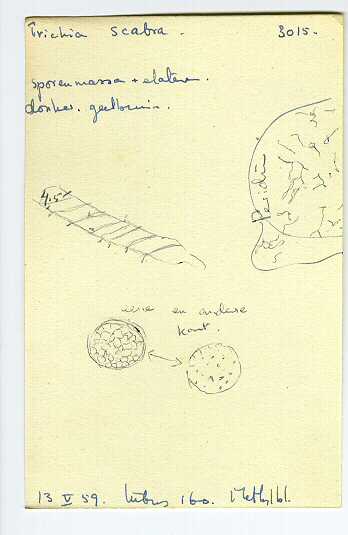 Trichia scabra. 3015.
sporenmassa + elateren.
donker. geelbruin.
Peridiu
4.5
eene en andere
kant.
13 V 59. tubus 160. Methylbl.